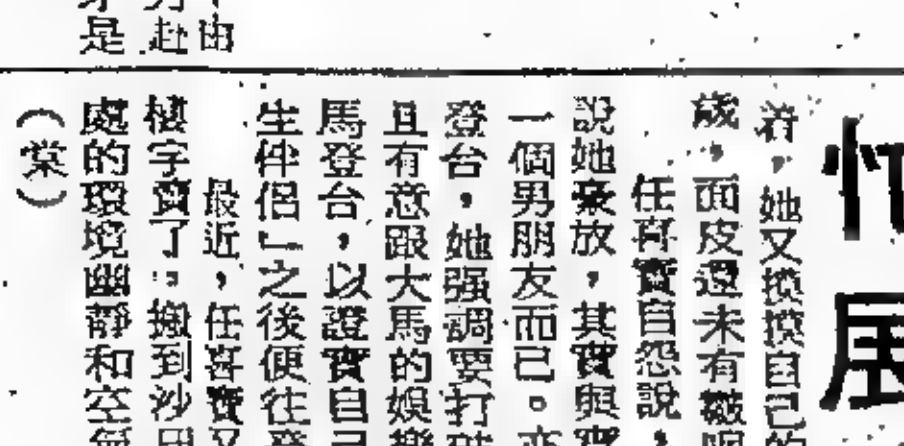 由
赴
是
展
着，她又摸摸自己的
歲，面皮還未有皺呢
任喜寶自怨說，
說她豪放，其實與寶
一個男朋友而已。亦
登台，她强調要打破
且有意跟大馬的娛樂
馬登台，以證實自己
生伴侶」之後便往登
最近，任喜寶又
樓宇賣了，搬到沙田
處的環境幽靜和空氣
（棠）